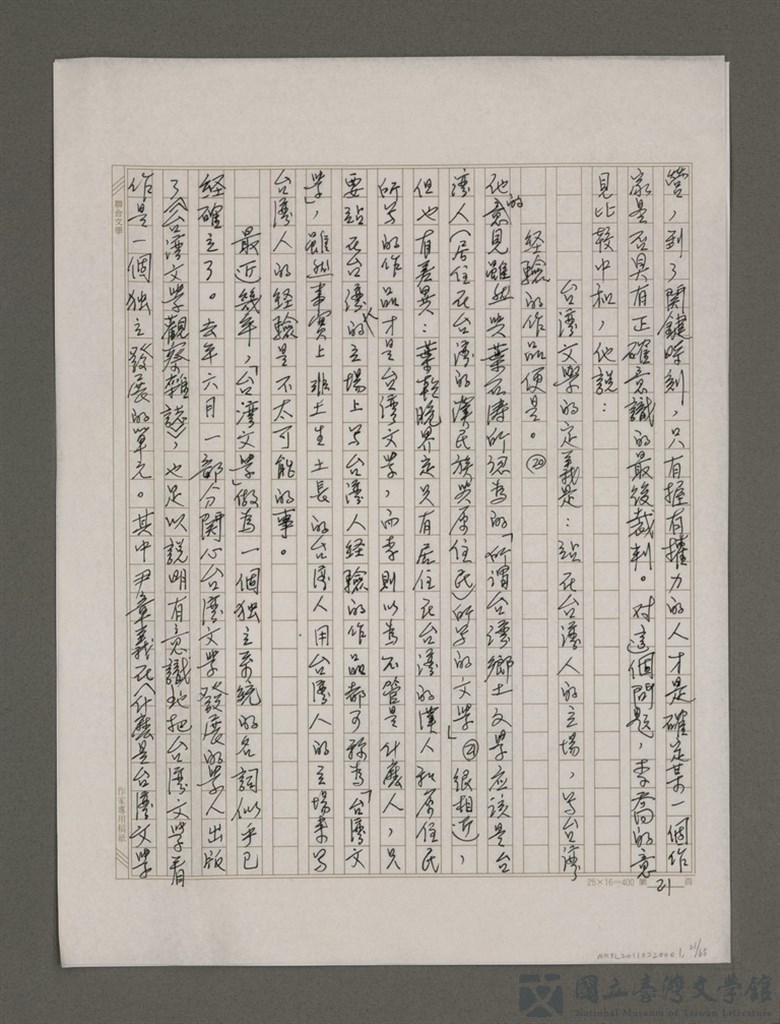 營，到了関鍵時刻，只有握有權力的人才是確定某一個作
家是否具有正確意識的最後裁判。对這個問題，李喬的意
見比較中和，他說：
台湾文學的定義是：站在台灣人的立場，写台湾
経驗的作品便是。⑳
他的意見雖然與葉石濤所認為的「所謂台湾鄉土文學應該是台
湾人（居住在台湾的漢民族與原住民）所写的文學」㉑很相近，
但也有差異：葉較晚界定只有居住在台湾的漢人和原住民
所写的作品才是台湾文学，而李則以為不管是什麼人，只
要站在台湾人的立場上写台湾人経驗的作品都可稱為「台湾文
學」，雖然事實上非土生土長的台湾人用台湾人的立場來写
台湾人的経驗是不太可能的事。
最近幾年，「台湾文學」做為一個独立系統的名詞似乎已
経確立了。去年六月一部分関心台湾文學發展的學人出版
了《台湾文學觀察雜誌》，也足以説明有意識地把台湾文學看
作是一個独立發展的單元。其中尹章義在〈什麼是台湾文學
聯合文學
作家專用稿紙
25×16＝400 第 21 頁
NMTL20110320001 21/65
國立臺灣文學館
National Museum of Taiwan Literature